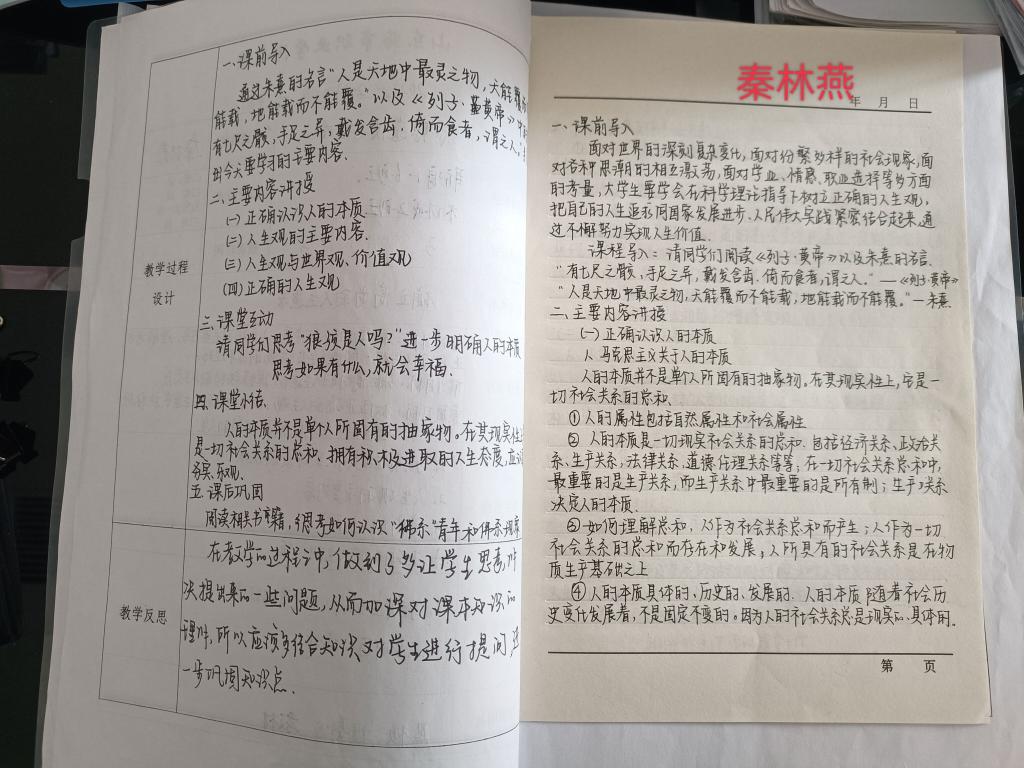 一.课前导入
通过朱熹的名言"人是天地中最灵之物,天能覆而
能载,地能载而不能覆。"以及《列子·黄帝》中的
有七尺之骸,手足之异,戴发含齿.倚而食者,谓之人。"
出今天要学习的主要内容.
二.主要内容讲授
(一)正确认识人的本质
(二)人生观的主要内容.
(三)人生观与世界观、价值观
(四)正确的人生观
教学过程
设计
三.课堂互动
请同学们思考"狼孩是人吗?"进一步明确人的本质
思考如果有什么,就会幸福.
四.课堂小结.
人的本质并不是单个人所固有的抽象物。在其现实性上
是一切社会关系的总和.拥有积极进取的人生态度,应该
务实、乐观.
五.课后巩固
阅读相关书籍,思考如何认识"佛系"青年和佛系现象
教学反思
在教学的过程当中,做到了多让学生思考,
提出来的一些问题,从而加深对课本知识的
理解,所以应该多结合知识对学生进行提问,进
一步巩固知识点.
秦林燕
年 月 日
一、课前导入
面对世界的深刻复杂变化,面对份繁多样的社会现象,面
对各种思潮的相互激荡,面对学业、情感、职业选择等多方面
的考量,大学生要学会在科学理论指导下树立正确的人生观,
把自己的人生追求同国家发展进步、人民伟大实践紧密结合起来,通
过不懈努力实现人生价值.
课程导入:请同学们阅读《列子·黄帝》以及朱熹的名言.
"有七尺之骸,手足之异,戴发含齿.倚而食者,谓之人。"——《列子·黄帝》
"人是天地中最灵之物,天能覆而不能载,地能载而不能覆。"—朱熹
二、主要内容讲授
(一)正确认识人的本质
1. 马克思主义关于人的本质
人的本质并不是单个人所固有的抽象物。在其现实性上,它是一
切社会关系的总和.
①人的属性包括自然属性和社会属性
② 人的本质是一切现实社会关系的总和.包括经济关系、政治关
系、生产关系、法律关系、道德伦理关系等等;在一切社会关系总和中,
最重要的是生产关系,而生产关系中最重要的是所有制;生产关系
决定人的本质.
③如何理解总和,人作为社会关系总和而产生;人作为一切
社会关系的总和而存在和发展,人所具有的社会关系是在物
质生产基础之上
④人的本质具体的、历史的、发展的.人的本质随着社会历
史变化发展着,不是固定不变的。因为人的社会关系总是现实的、具体的.
第 页